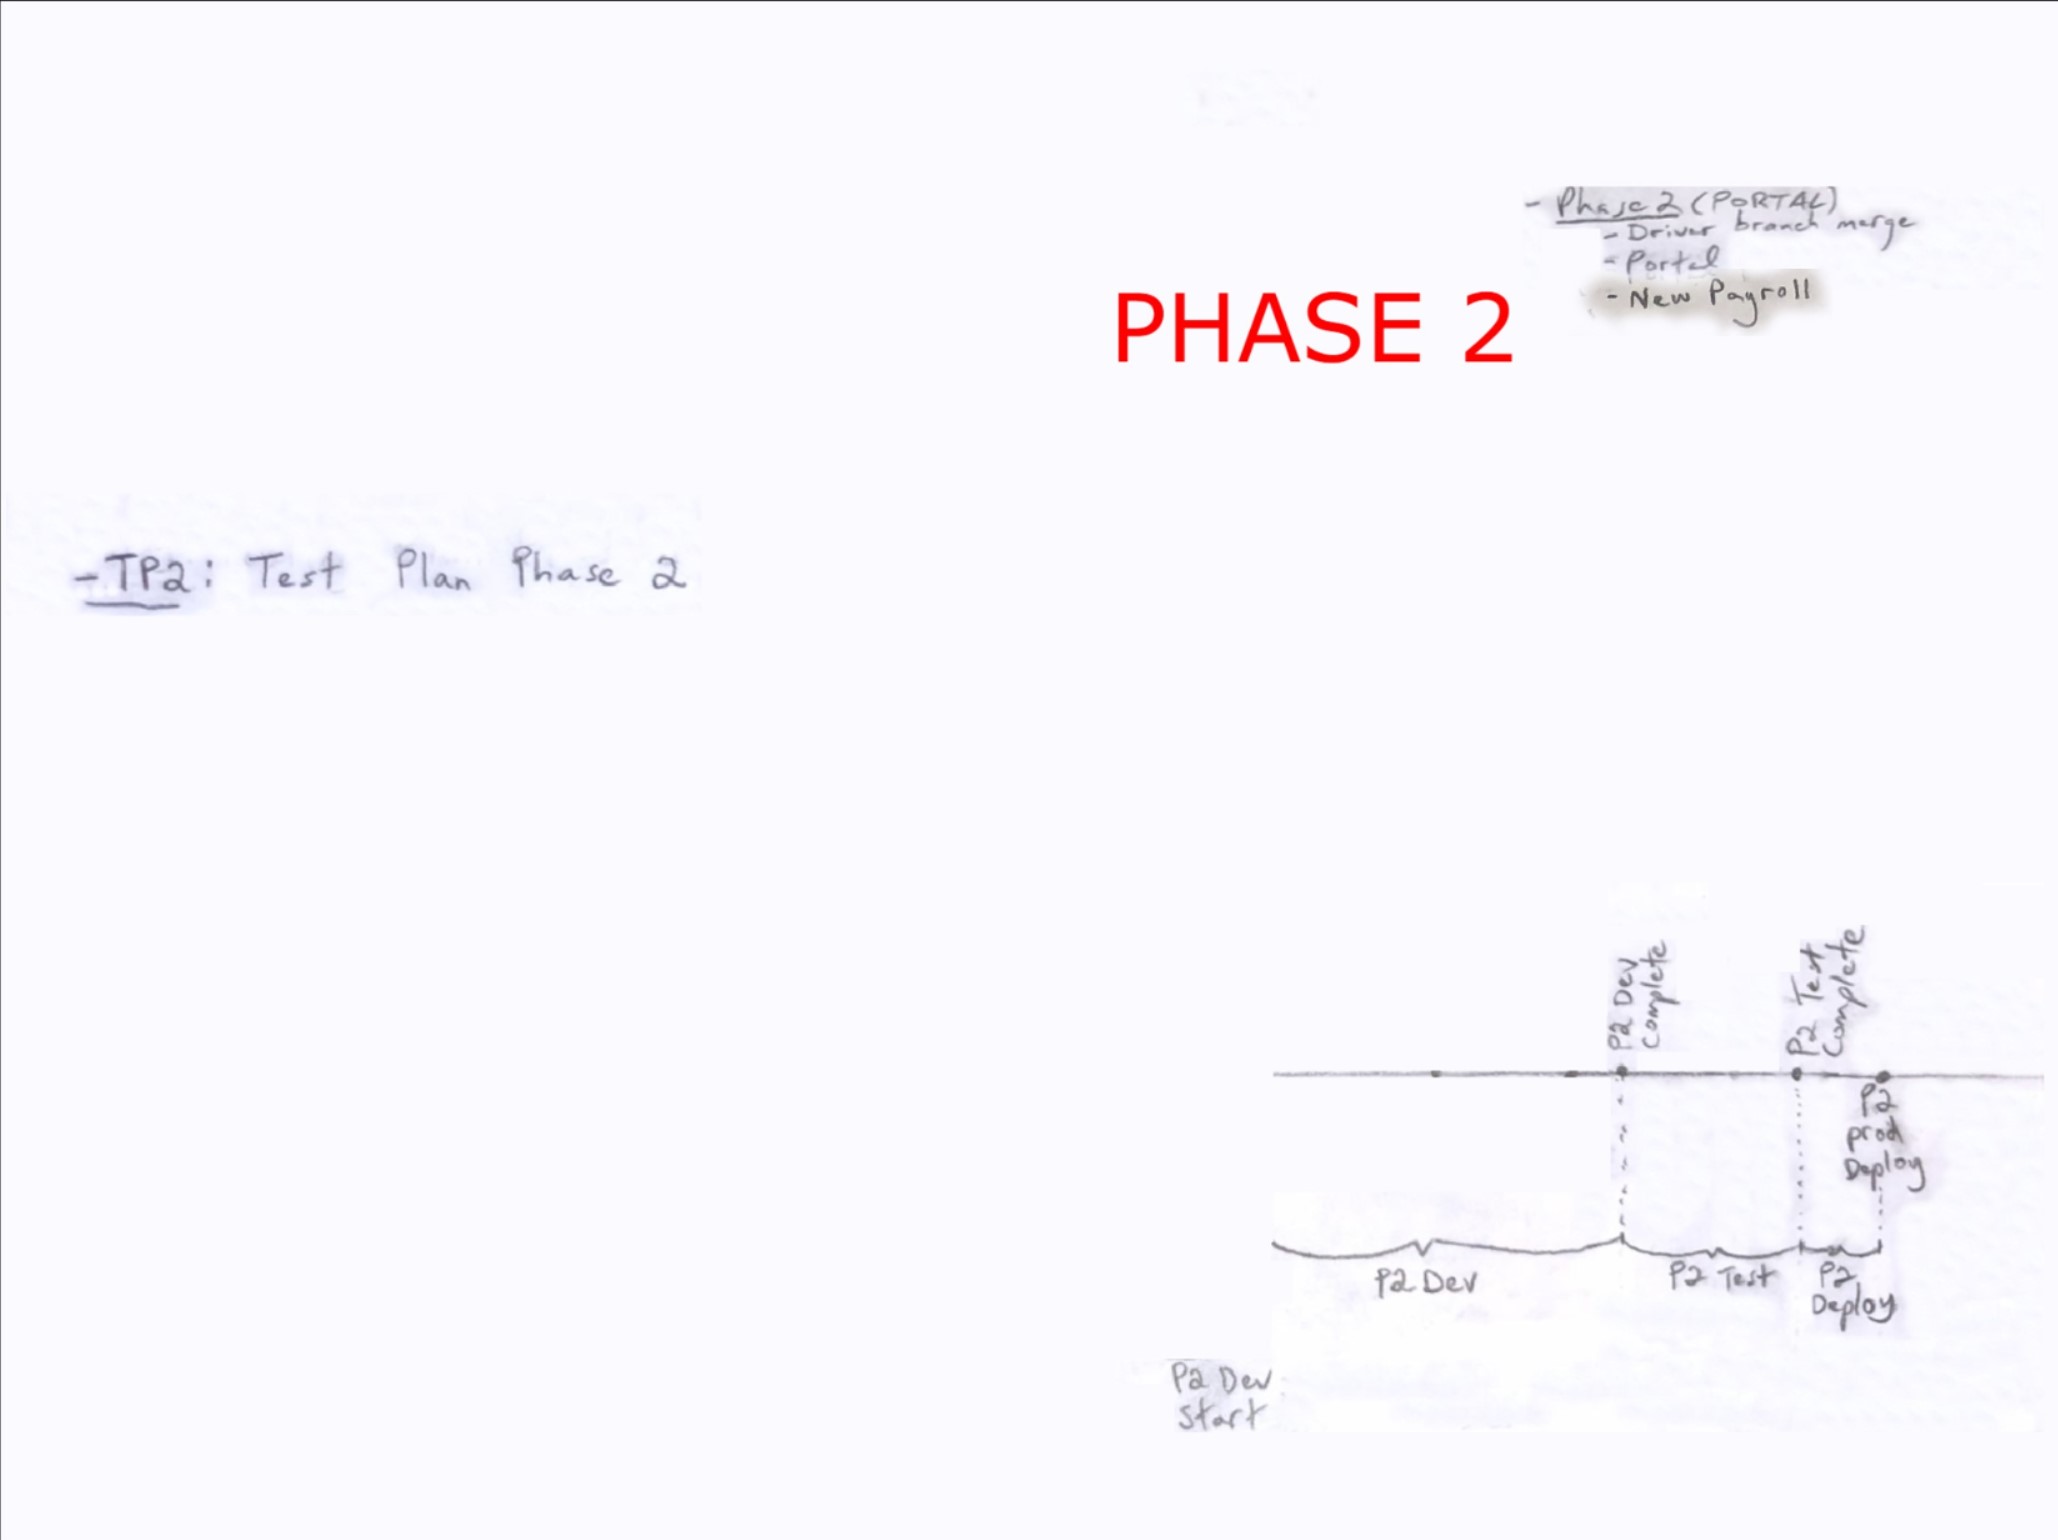 - Phase 2 (PORTAL)
- Driver branch merge
- Portal
- New Payroll
PHASE 2
- TP2: Test Plan Phase 2
P2 Dev
Complete
P2 Test
Complete
P2
prod
Deploy
P2 Dev
P2 Test
P2
Deploy
P2 Dev
Start